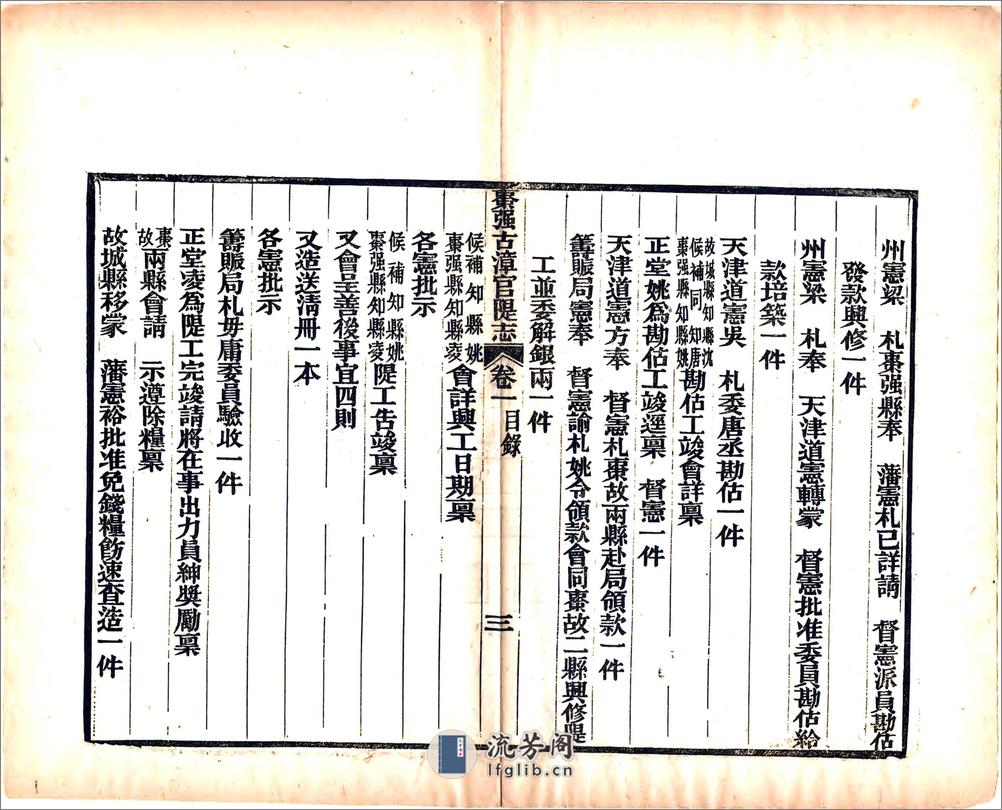 州憲梁　札棗强縣奉　藩憲札已詳請　督憲派員勘估
發款興修一件
州憲梁　札奉　天津道憲轉蒙　督憲批准委員勘估給
款培築一件
天津道憲吳　札委唐丞勘估一件
故城縣知縣沈
候補同知唐
棗强縣知縣姚
勘估工竣會詳稟
正堂姚爲勘估工竣逕稟　督憲一件
天津道憲方奉　督憲札棗故兩縣赴局領款一件
籌賑局憲奉　督憲諭札姚令領款會同棗故二縣興修隄
工並委解銀兩一件
棗强古漳官隄志
卷一
目錄
三
候補知縣姚
棗强縣知縣凌
會詳興工日期稟
各憲批示
候補知縣姚
棗强縣知縣凌
隄工告竣稟
又會呈善後事宜四則
又造送淸冊一本
各憲批示
籌賑局札毋庸委員驗收一件
正堂凌爲隄工完竣請將在事出力員紳奬勵稟
棗
故
兩縣會請　示遵除糧稟
故城縣移蒙　藩憲裕批准免錢糧飭速查造一件
流芳阁
lfglib.cn